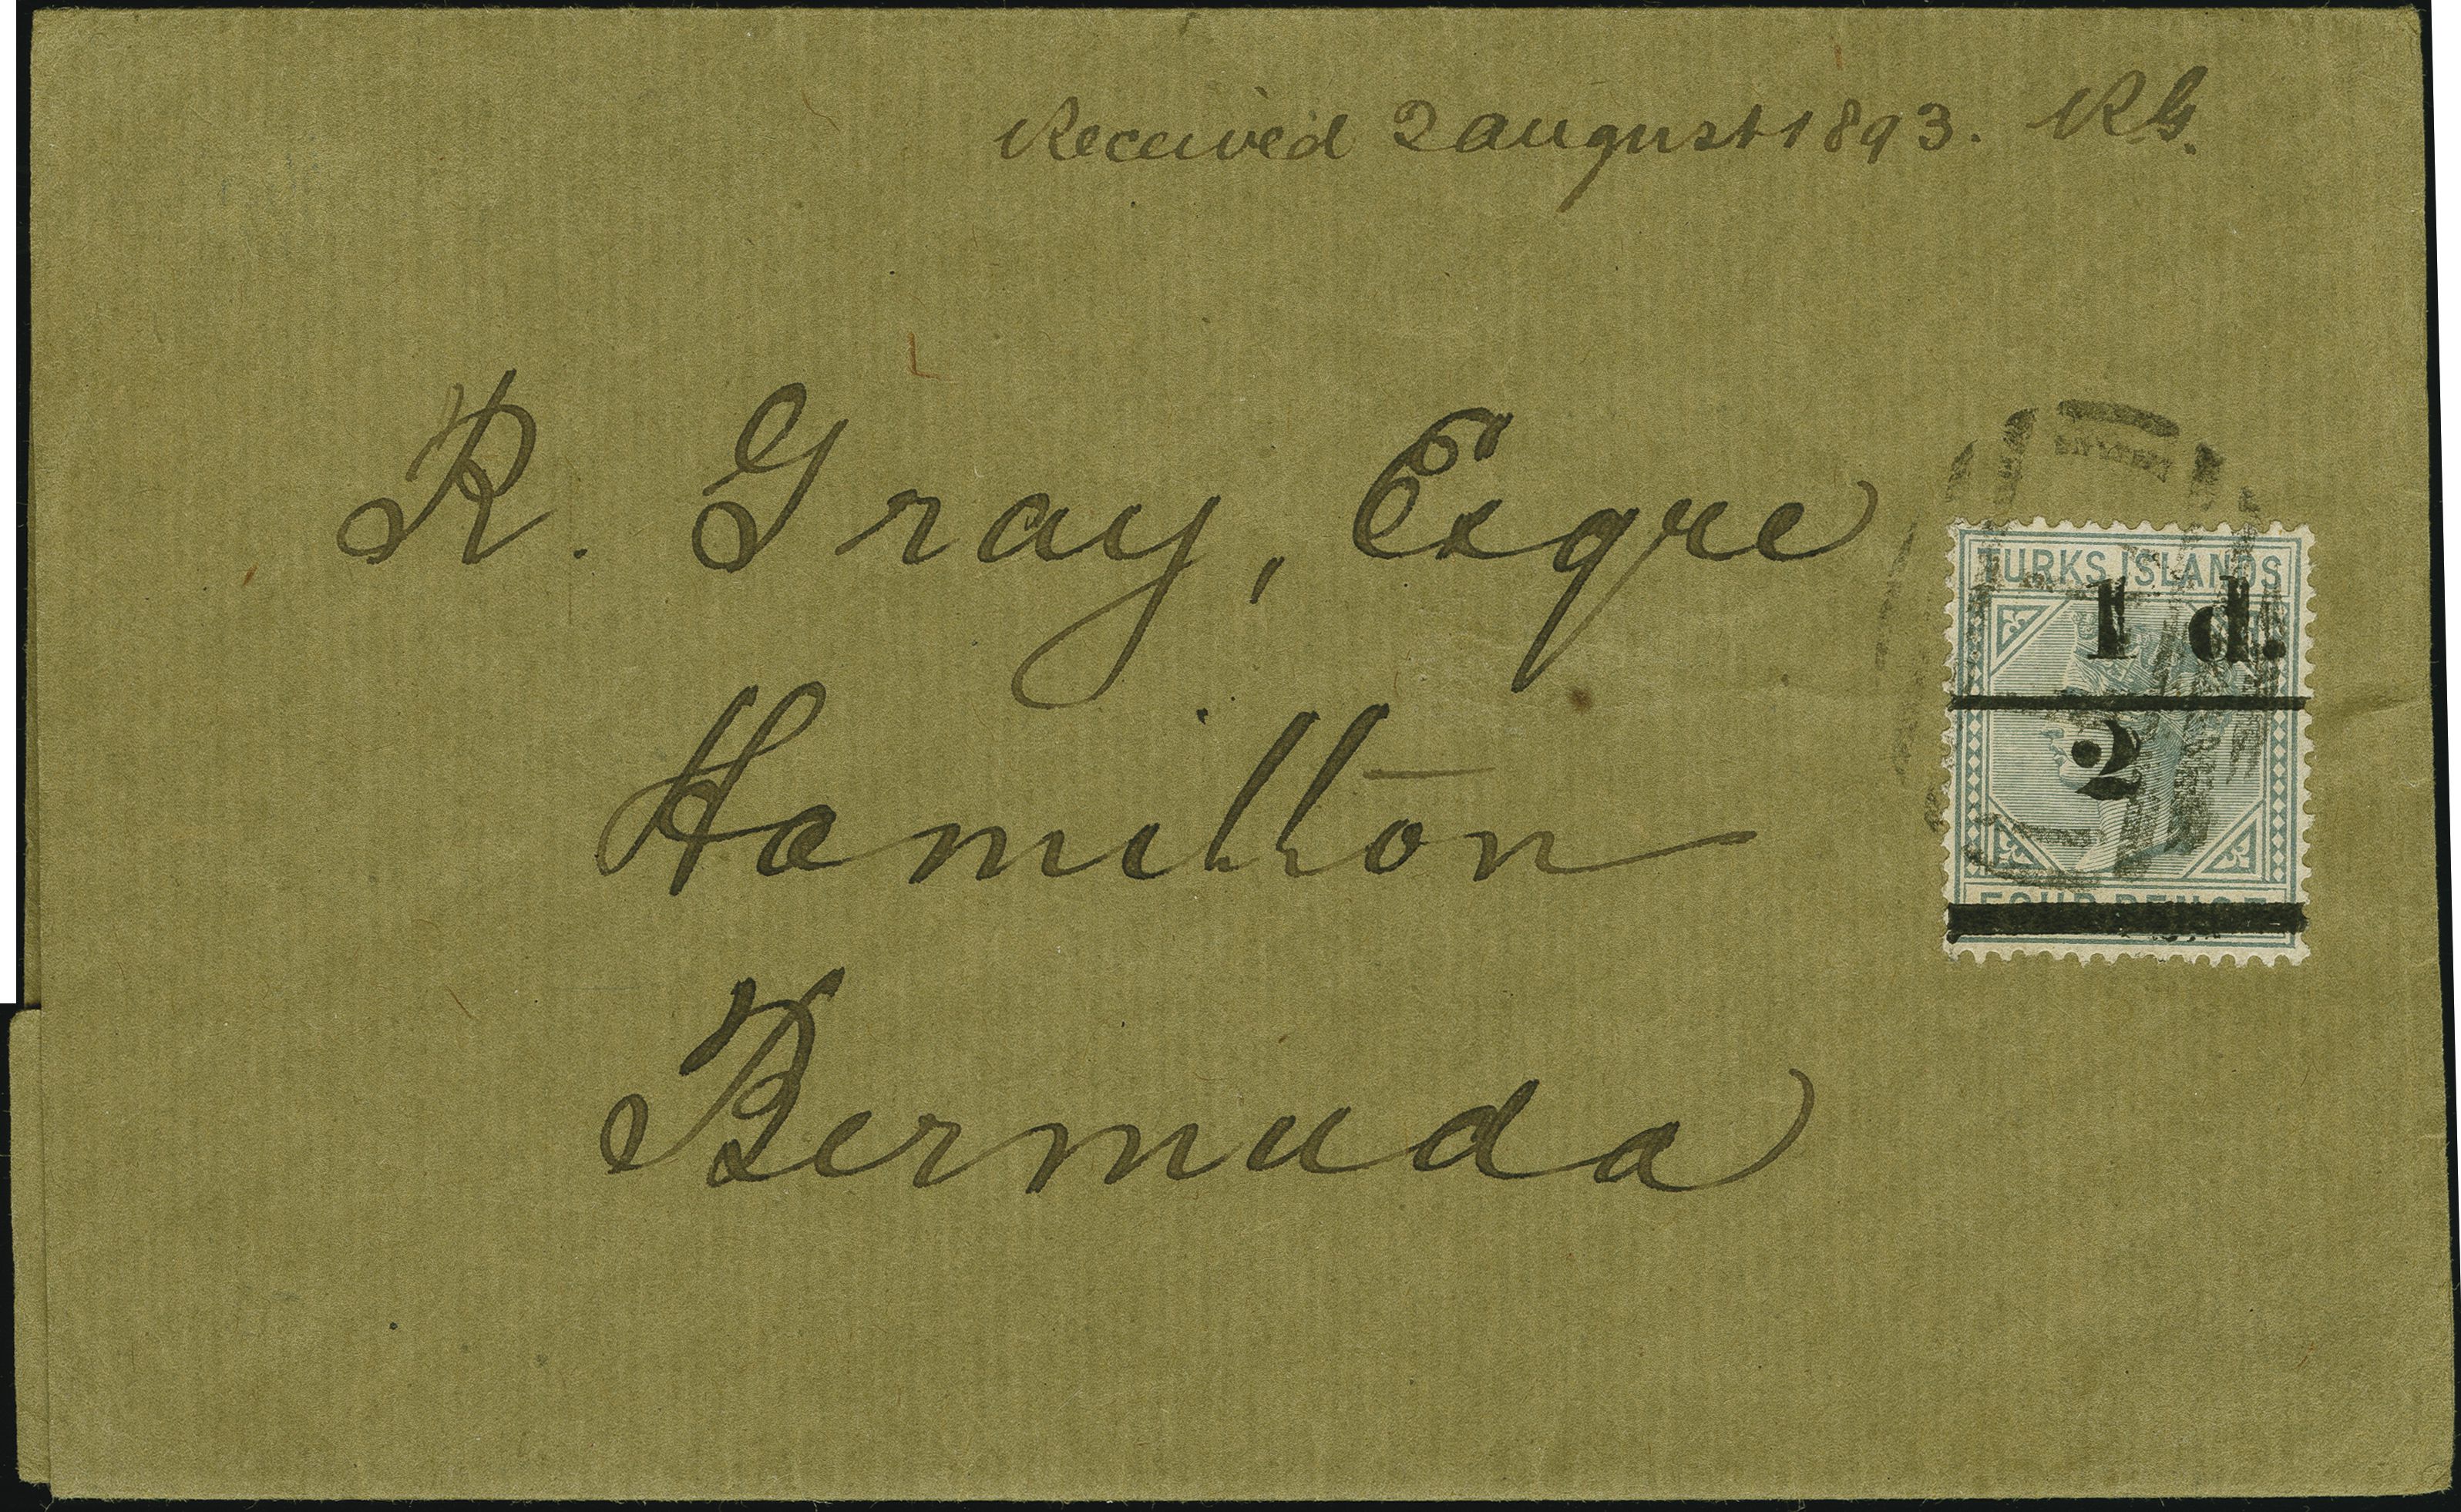 Received 2 august 1893. RG.
R. Gray, Esqre
Hamilton
Bermuda
TURKS ISLANDS
1 d.
2
FOUR PENCE